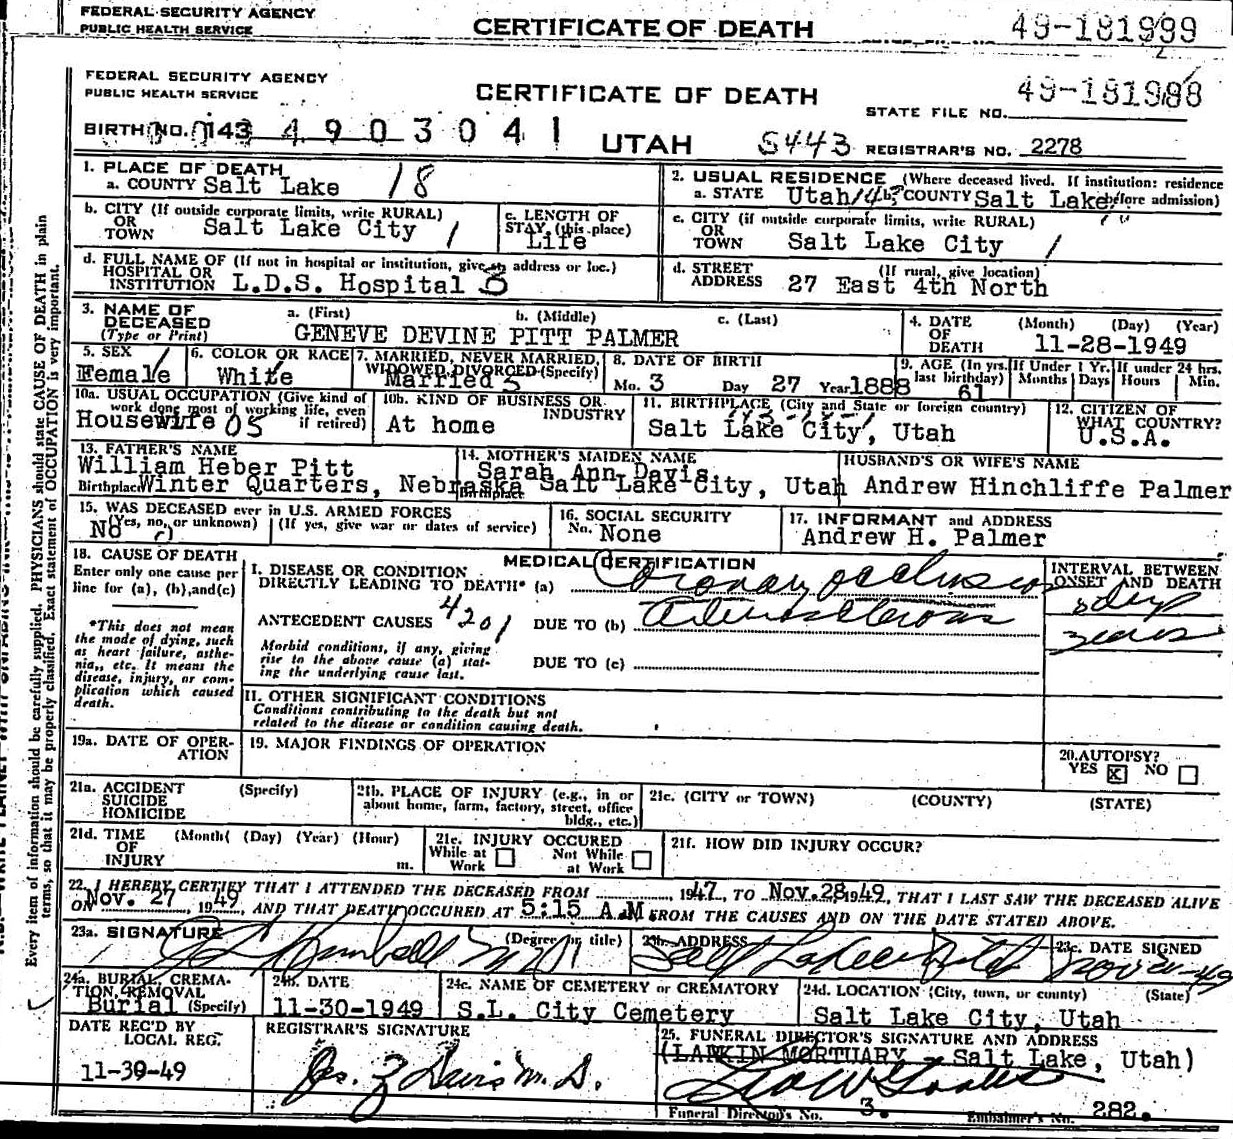 FEDERAL SECURITY AGENCY
PUBLIC HEALTH SERVICE
CERTIFICATE OF DEATH
49-181999
FEDERAL SECURITY AGENCY
PUBLIC HEALTH SERVICE
CERTIFICATE OF DEATH
STATE FILE NO. 49-181988
BIRTH NO. 143 4903041
UTAH S443 REGISTRAR'S NO. 2278
1. PLACE OF DEATH
a. COUNTY Salt Lake 18
2. USUAL RESIDENCE (Where deceased lived. If institution: residence before admission)
a. STATE Utah b. COUNTY Salt Lake
b. CITY (If outside corporate limits, write RURAL)
OR
TOWN Salt Lake City 1
c. LENGTH OF
STAY (this place)
Life
c. CITY (if outside corporate limits, write RURAL)
OR
TOWN Salt Lake City 1
d. FULL NAME OF (If not in hospital or institution, give st. address or loc.)
HOSPITAL OR
INSTITUTION L.D.S. Hospital
d. STREET (If rural, give location)
ADDRESS 27 East 4th North
3. NAME OF
DECEASED
(Type or Print)
a. (First) b. (Middle) c. (Last)
GENEVE DEVINE PITT PALMER
4. DATE (Month) (Day) (Year)
OF
DEATH 11-28-1949
5. SEX
Female
6. COLOR OR RACE
White
7. MARRIED, NEVER MARRIED,
WIDOWED, DIVORCED (Specify)
Married
8. DATE OF BIRTH
Mo. 3 Day 27 Year 1888
9. AGE (In yrs. last birthday)
61
If Under 1 Yr.
Months Days
If under 24 hrs.
Hours Min.
10a. USUAL OCCUPATION (Give kind of
work done most of working life, even
if retired)
Housewife 05
10b. KIND OF BUSINESS OR
INDUSTRY
At home
11. BIRTHPLACE (City and State or foreign country)
Salt Lake City, Utah
12. CITIZEN OF
WHAT COUNTRY?
U.S.A.
13. FATHER'S NAME
William Heber Pitt
Birthplace Winter Quarters, Nebraska
14. MOTHER'S MAIDEN NAME
Sarah Ann Davis
Birthplace Salt Lake City, Utah
HUSBAND'S OR WIFE'S NAME
Andrew Hinchliffe Palmer
15. WAS DECEASED ever in U.S. ARMED FORCES
(Yes, no, or unknown) (If yes, give war or dates of service)
No
16. SOCIAL SECURITY
No. None
17. INFORMANT and ADDRESS
Andrew H. Palmer
18. CAUSE OF DEATH
Enter only one cause per
line for (a), (b), and (c)
*This does not mean
the mode of dying, such
as heart failure, asthe-
nia,, etc. It means the
disease, injury, or com-
plication which caused
death.
MEDICAL CERTIFICATION
I. DISEASE OR CONDITION
DIRECTLY LEADING TO DEATH* (a) Coronary occlusion
ANTECEDENT CAUSES 4201 DUE TO (b)
Morbid conditions, if any, giving
rise to the above cause (a) stat-
ing the underlying cause last.
DUE TO (c)
INTERVAL BETWEEN
ONSET AND DEATH
days
years
II. OTHER SIGNIFICANT CONDITIONS
Conditions contributing to the death but not
related to the disease or condition causing death.
19a. DATE OF OPER-
ATION
19. MAJOR FINDINGS OF OPERATION
20. AUTOPSY?
YES X NO
21a. ACCIDENT (Specify)
SUICIDE
HOMICIDE
21b. PLACE OF INJURY (e.g., in or
about home, farm, factory, street, office
bldg., etc.)
21c. (CITY or TOWN) (COUNTY) (STATE)
21d. TIME (Month( (Day) (Year) (Hour)
OF
INJURY m.
21e. INJURY OCCURED
While at Work Not While at Work
21f. HOW DID INJURY OCCUR?
22. I HEREBY CERTIFY THAT I ATTENDED THE DECEASED FROM 1947, TO Nov. 28, 1949, THAT I LAST SAW THE DECEASED ALIVE
ON Nov. 27, 1949, AND THAT DEATH OCCURED AT 5:15 A.M FROM THE CAUSES AND ON THE DATE STATED ABOVE.
23a. SIGNATURE (Degree or title)
Kimball MD
23b. ADDRESS
Salt Lake City Utah
23c. DATE SIGNED
24a. BURIAL, CREMA-
TION, REMOVAL
Burial (Specify)
24b. DATE
11-30-1949
24c. NAME OF CEMETERY or CREMATORY
S.L. City Cemetery
24d. LOCATION (City, town, or county) (State)
Salt Lake City, Utah
DATE REC'D BY
LOCAL REG.
11-30-49
REGISTRAR'S SIGNATURE
Jas. Z Davis M.D.
25. FUNERAL DIRECTOR'S SIGNATURE AND ADDRESS
(LARKIN MORTUARY - Salt Lake, Utah)
Funeral Director's No. 3. Embalmer's No. 282.
Every item of information should be carefully supplied. PHYSICIANS should state CAUSE OF DEATH in plain
terms, so that it may be properly classified. Exact statement of OCCUPATION is very important.